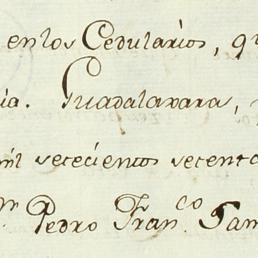 en los Cedularios, qu
ia. Guadalaxara,
mil setecientos setenta
Pedro Fran.co Gam